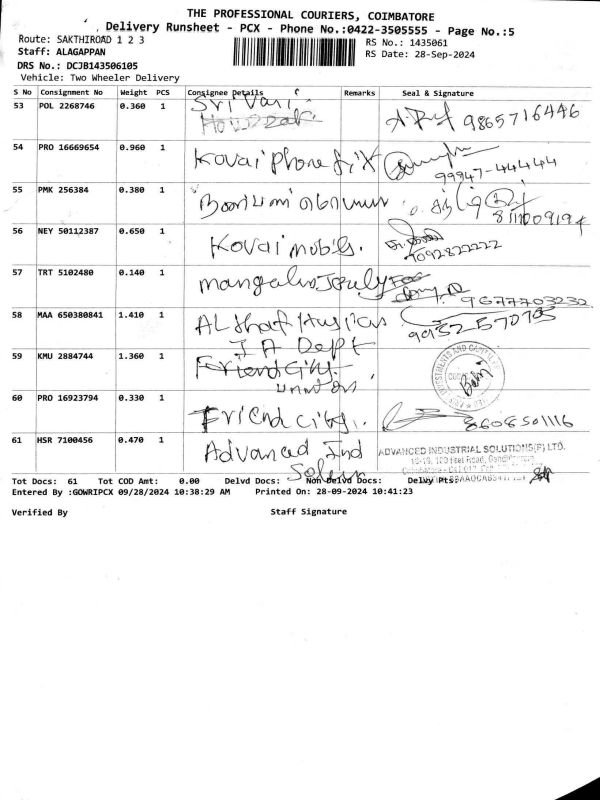 THE PROFESSIONAL COURIERS, COIMBATORE
Delivery Runsheet - PCX - Phone No.:0422-3505555 - Page No.:5
Route: SAKTHIROAD 1 2 3
RS No.: 1435061
Staff: ALAGAPPAN
RS Date: 28-Sep-2024
DRS No.: DCJB143506105
Vehicle: Two Wheeler Delivery
S No Consignment No Weight PCS Consignee Details Remarks Seal & Signature
53 POL 2268746 0.360 1 Sri Vari 9865716446
54 PRO 16669654 0.960 1 Kovai Phone fix 99947-44444
55 PMK 256384 0.380 1
56 NEY 50112387 0.650 1 Kovai mobils. 7092822222
57 TRT 5102480 0.140 1 9677703232
58 MAA 650380841 1.410 1
I A Dept
59 KMU 2884744 1.360 1 Friend City
60 PRO 16923794 0.330 1 Friend city. 8608501116
61 HSR 7100456 0.470 1 Advanced Ind
ADVANCED INDUSTRIAL SOLUTIONS(P) LTD.
Tot Docs: 61 Tot COD Amt: 0.00 Delvd Docs: Non Delvd Docs: Delvy Pts:
Entered By :GOWRIPCX 09/28/2024 10:38:29 AM Printed On: 28-09-2024 10:41:23
Verified By Staff Signature